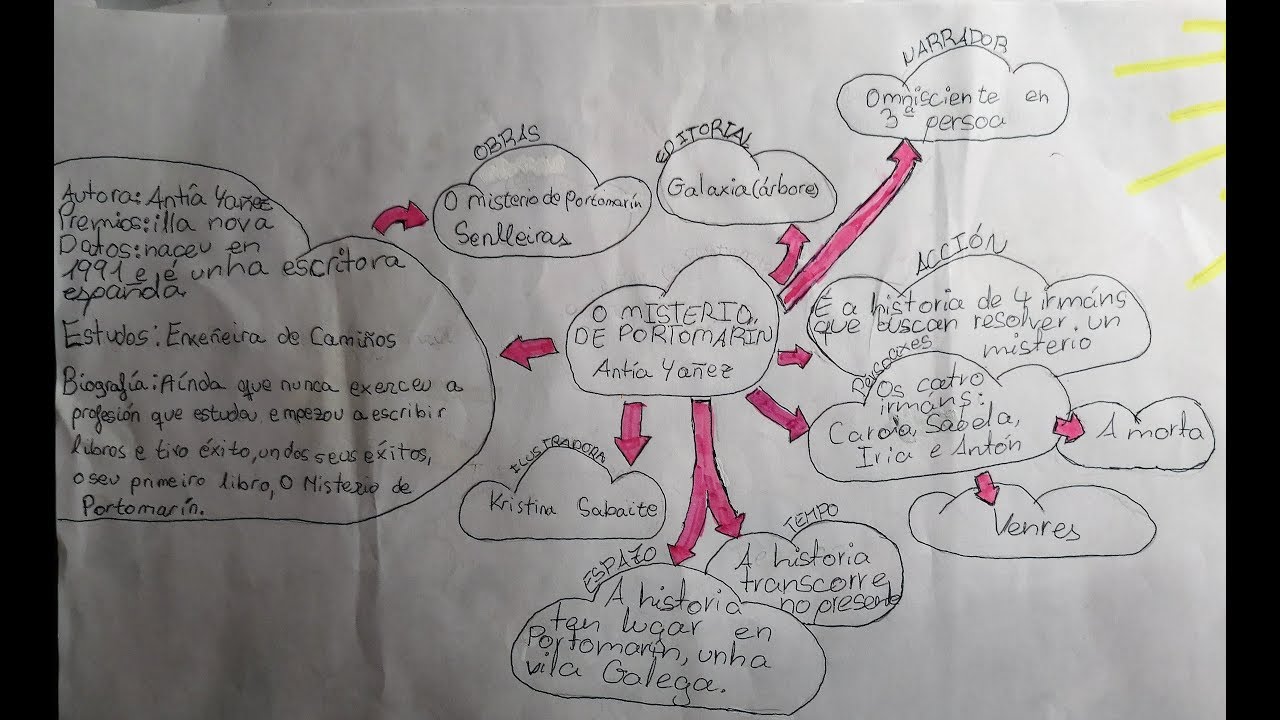 NARRADOR
Omnisciente en
3ª persoa
OBRAS
O misterio de Portomarín
Senlleiras
EDITORIAL
Galaxia (árbores)
Autora: Antía Yañez
Premios: illa nova
Datos: naceu en
1991 e é unha escritora
española.
Estudos: Enxeñeira de Camiños
Biografía: Aínda que nunca exerceu a
profesión que estudou empezou a escribir
libros e tivo éxito, un dos seus éxitos,
o seu primeiro libro, O Misterio de
Portomarín.
O MISTERIO
DE PORTOMARIN
Antía Yañez
ACCIÓN
É a historia de 4 irmáns
que buscan resolver un
misterio
PERSOAXES
Os catro
irmáns:
Carola, Sabela,
Iria e Antón
A morta
Venres
ILUSTRADORA
Kristina Sabaite
TEMPO
A historia
transcorre
no presente
ESPAZO
A historia
ten lugar en
Portomarín, unha
vila Galega.